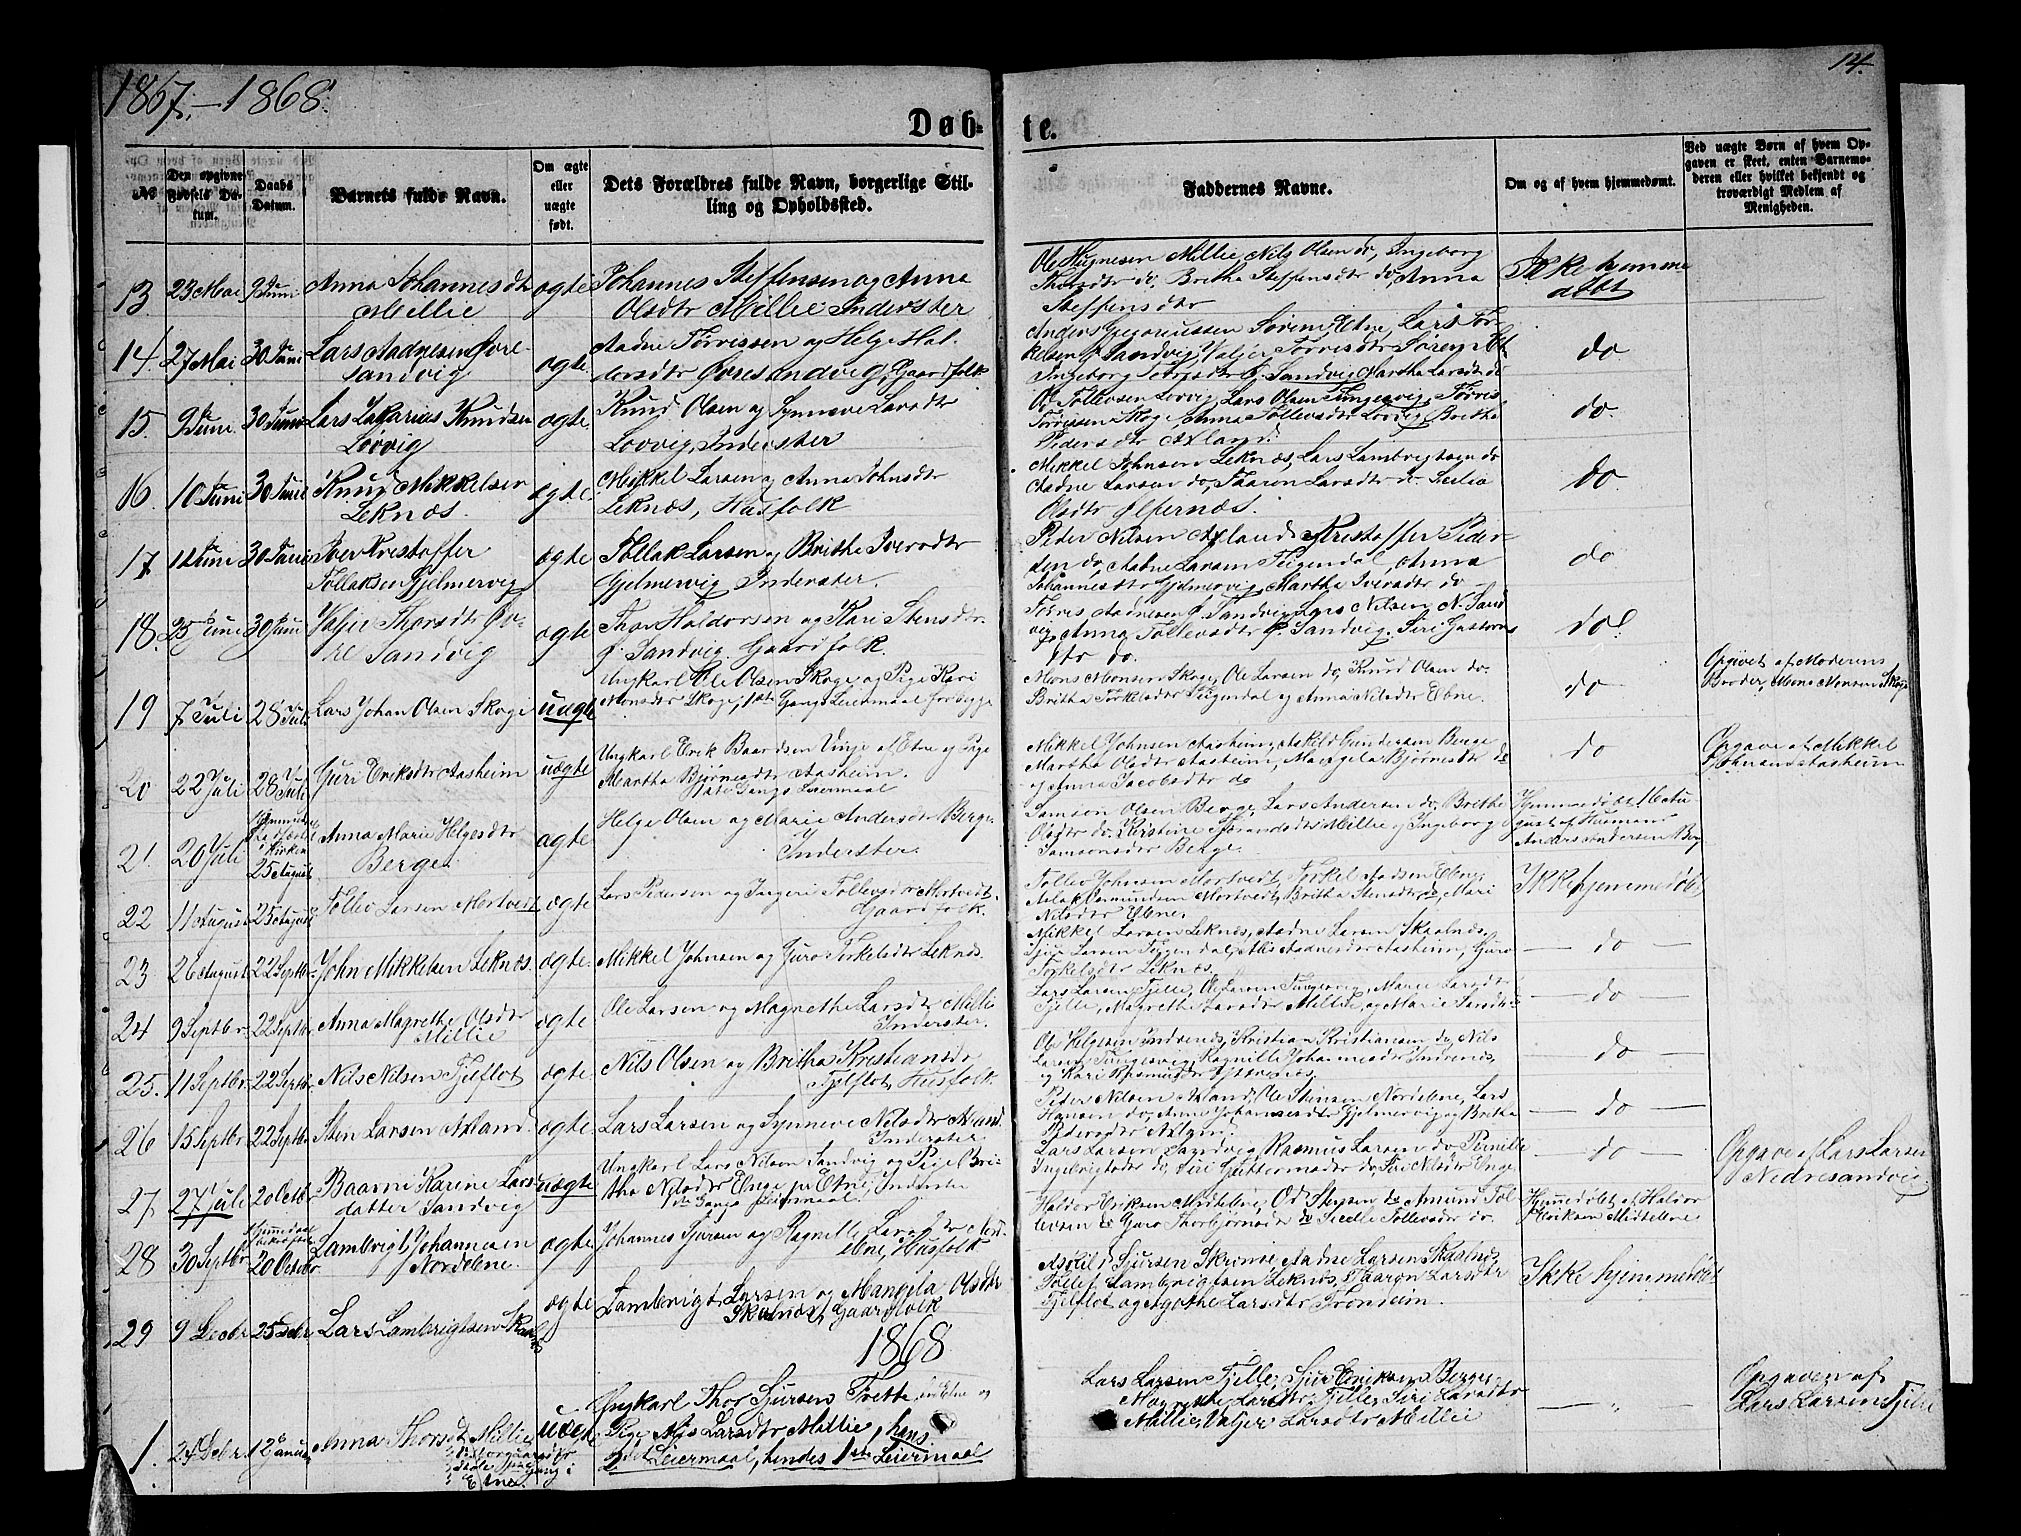 1867.-1868.
14.
Døb-
te.
№
Den opgivne Fødsels Datum.
Daabs Datum.
Barnets fulde Navn.
Om ægte eller uægte født.
Dets Forældres fulde Navn, borgerlige Stilling og Opholdssted.
Faddernes Navne.
Om og af hvem hjemmedømt.
Ved uægte Børn af hvem Opgaven er skeet, enten Barnemoderen eller hvilket bekjendt og troværdigt Medlem af Menigheden.
13 23 Mai 9 Juni Anna Johannesdtr Millie ægte Johannes Steffensen og Anna Olsdtr Millie Inderster
Millie, Nils Olsen do, Ingeborg
do, Britha Steffensdtr do, Anna
Steffensdtr
Ikke hjemmedøbt
14. 27 Mai 30 Juni Lars Aadnesen Øvresandvig ægte Aadne Tørrissen og Helge Haldorsdtr Øvresandvig, Gaardfolk
Etne, Lars
Sandvig, Valjer Tørrisdtr
Ingeborg Sandvig Martha Larsdtr do
do
15. 9 Juni 30 Juni Lars Zakarias Knudsen Lovvig ægte Knud Olsen og Synneve Larsdtr Lovvig, Inderster
Tollevsen Lovvig, Lars Olsen Tungesvig, Tørris
Tørrissen Skoge, Anna Tollevsdtr Lovvig, Britha
Pedersdtr Axland.
do.
16 10 Juni 30 Juni Knud Mikkelsen Leknæs. ægte. Mikkel Larsen og Anna Johnsdtr Leknæs, Husfolk
Mikkel Johnsen Leknæs, Lars Lambrigtsen do
Aadne Larsen do, Taaron Larsdtr do
Olsdtr Ølfernæs.
do.
17 Juni 30 Juni Iver Kristoffer Tollaksen Gjelmervig ægte Tollak Larsen og Britha Iversdtr Gjelmervig Inderster.
Peder Nilsen Axland, Kristoffer Peder-
sen do, Aadne Larsen Teigendal, Anna
Johannesdtr Gjelmervig, Martha Iversdtr do
do
18. 25 Juni 30 Juni Valjer Thorsdtr Øvre Sandvig ægte Thor Haldorsen og Kari Stensdtr Ø. Sandvig. Gaardfolk.
Tørris Aadnesen Ø. Sandvig, Lars Nilsen N. Sand
vig, Anna Tollevsdtr Ø. Sandvig. Siri
dtr do.
do
19 7 Juli 28 Juli Lars Johan Olsen Skoge uægte Ungkarl Ole Olsen Skoge og Pige Kari Monsdtr Skoge, 1ste Gangs Leiermaal for begge
Mons Monsen Skoge, Ole Larsen do, Knud Olsen do.
Britha Torkelsdtr Teigendal og Anna Nilsdtr Ebne.
do
Opgivet af Moderens Broder, Mons Monsen Skoge
20 22 Juli 28 Juli Guri Eriksdtr Aasheim uægte Ungkarl Erik Baardsen Vinje af Etne og Pige Martha Bjørnesdtr Aasheim. 1ste Gangs Leiermaal
Mikkel Johnsen Aasheim, Askild Gundersen Berge
Martha Olsdtr Aasheim, Mangela Bjørnesdtr do
og Anna Jacobsdtr do
do
Opgave af Mikkel Johnsen Aasheim
21. 20 Juli 25 August Anna Marie Helgesdtr Berge. ægte Helge Olsen og Marie Andersdtr Berge. Inderster.
Samson Olsen Berge, Lars Andersen do, Britha
Olsdtr do, Kirstine Millie og Ingeborg
Samsonsdtr Berge.
Hjemmedøbt Anders Andersen Berge
22 11 August 25 August Tollev Larsen Mortvedt ægte Lars Pedersen og Ingeri Tollevsdtr Mortvedt. Gaardfolk.
Tollev Johnsen Mortvedt, Torkel Aadsen Ebne,
Aslak Amundsen Mortvedt, Britha Stensdtr do, Mari
Nilsdtr Ebne.
Ikke hjemmedøbt
23 26 August 22 Septbr John Mikkelsen Leknæs. ægte. Mikkel Johnsen og Guro Torkelsdtr Leknæs.
Mikkel Larsen Leknæs, Aadne Larsen Skaalnæs,
Larsen Teigendal, Aadnesdtr Aasheim, Guro
Torkelsdtr Leknæs.
— do —
24 9 Septbr. 22 Septbr. Anna Magrethe Olsdtr Millie ægte Ole Larsen og Magrethe Larsdtr Millie Inderster.
Lars Larsen Tjelle, Ole Larsen Tungesvig, Marie Larsdtr
Tjelle, Magrethe Larsdtr Millie, og Marie Larsdtr
— do —
25. 11 Septbr. 22 Septbr. Nils Nilsen Fjelflot ægte Nils Olsen og Britha Kristiansdtr Fjelflot, Husfolk.
Ole Helgesen Indrenæs, Kristian Kristiansen do, Nils
Larsen Tungesvig, Ragnille Johannesdtr Indrenæs,
og Kari Rasmusdtr
— do —
26 15 Septbr 22 Septbr Sten Larsen Axland. ægte. Lars Larsen og Synneve Nilsdtr Axland. Inderster.
Peder Nilsen Axland, Ole Stensen Nordebne, Lars
Hansen do, Anna Johannesdtr Gjelmervig og Britha
Pedersdtr Axland.
— do —
27 27 Juli 20 Octbr Baarni Karine Larsdatter Sandvig uægte Ungkarl Lars Nilsen Sandvig og Pige Britha Nilsdtr Enge i Etne, Inderster 1ste Gangs Leiermaal
Lars Larsen Sandvig, Rasmus Larsen do, Pernille
Ingebrigtsdtr do, Siri Guttormsdtr do, Siri Nilsdtr Enge
— do —
Opgave af Lars Larsen Nedresandvig.
28 30 Septbr. 20 Octobr. Lambrigt Johannesen Nordebne. ægte Johannes Sjursen og Ragnille Larsdtr Nordebne, Husfolk
Haldor Eriksen Midtebne, Od do Amund Tol-
levsen do Guro Thorbjørnsdtr do Tollevsdtr do.
Hjemmedøbt af Haldor Eriksen Midtebne
29 9 Decbr 25 Decbr Lars Lambrigtsen Skaalnæs ægte Lambrigt Larsen og Mangela Olsdtr Skaalnæs, Gaardfolk
Askild Sjursen Skrimse, Aadne Larsen Skaalnæs,
Tollef Lambrigtsen Leknæs, Taaron Larsdtr
Fjelflot og Agothe Larsdtr Tronheim.
Ikke hjemmedøbt
1868
1. 24 Decbr. 12 Januar Anna Thorsdtr Millie uægte Ungkarl Thor Sjursen Tvette, Etne og Pige Larsdtr Millie, hans 2det Leiermaal, hendes 1ste Leiermaal
i Etne.
Lars Larsen Tjelle, Sjur Eriksen Berge,
Magrethe Larsdtr Tjelle, Siri Larsdtr
Millie, Valjer Larsdtr Millie
— „ —
Opgaven af Lars Larsen Tjelle